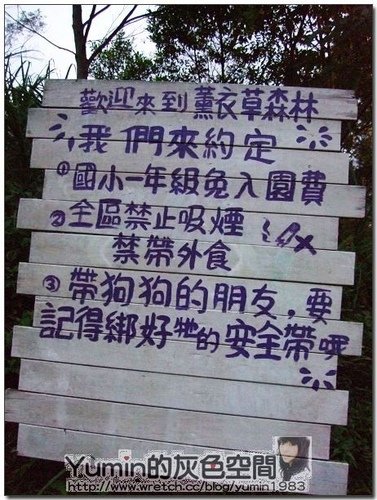 歡迎來到薰衣草森林
我們來約定
①國小一年級免入園費
②全區禁止吸煙
禁帶外食
③帶狗狗的朋友，要
記得綁好牠的安全帶哦
Yumin的灰色空間
http://www.wretch.cc/blog/yumin1983